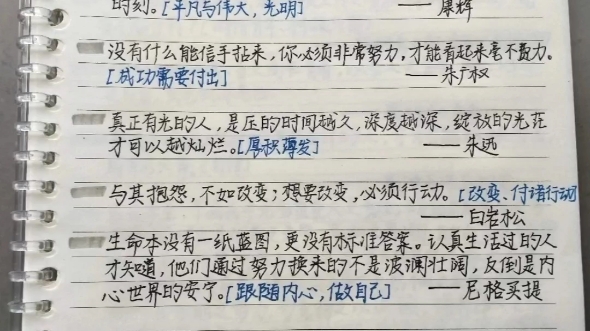 时刻。[平凡与伟大,光明] ——康辉
没有什么能信手拈来,你必须非常努力,才能看起来毫不费力。
[成功需要付出] ——朱广权
真正有光的人,是压的时间越久,深度越深,绽放的光茫
才可以越灿烂。[厚积薄发] ——朱迅
与其抱怨,不如改变;想要改变,必须行动。[改变、付诸行动]
——白岩松
生命本没有一纸蓝图,更没有标准答案。认真生活过的人
才知道,他们通过努力换来的不是波澜壮阔,反倒是内
心世界的安宁。[跟随内心,做自己] ——尼格买提